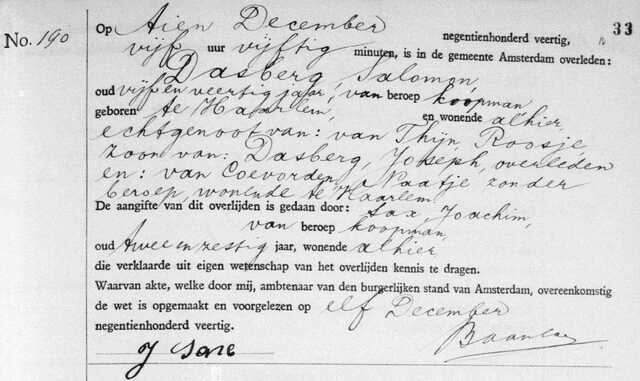 No. 190
33
Op Tien December negentienhonderd veertig,
vijf uur vijftig minuten, is in de gemeente Amsterdam overleden:
Dasberg, Salomon,
oud vijf en veertig jaar, van beroep koopman
geboren te Haarlem, en wonende alhier,
echtgenoot van: van Thijn, Roosje,
zoon van: Dasberg, Joseph, overleden
en: van Coevorden, Naatje, zonder
beroep, wonende te Haarlem.
De aangifte van dit overlijden is gedaan door: Sax, Joachim,
van beroep koopman,
oud twee en zestig jaar, wonende alhier,
die verklaarde uit eigen wetenschap van het overlijden kennis te dragen.
Waarvan akte, welke door mij, ambtenaar van den burgerlijken stand van Amsterdam, overeenkomstig
de wet is opgemaakt en voorgelezen op elf December
negentienhonderd veertig.